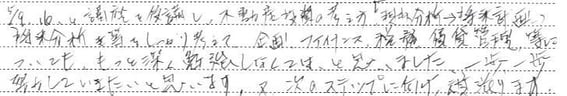 5/9, 16, と講義を受講し、不動産投資の考え方「現状分析→将来計画」
将来分析を しっかり考えて 企画 ファイナンス 税務 賃貸管理 等に
ついても、もっと深く勉強しなくては、と思いました。一歩一歩
努力していきたいと思います。又、次のステップに向け、頑張ります。